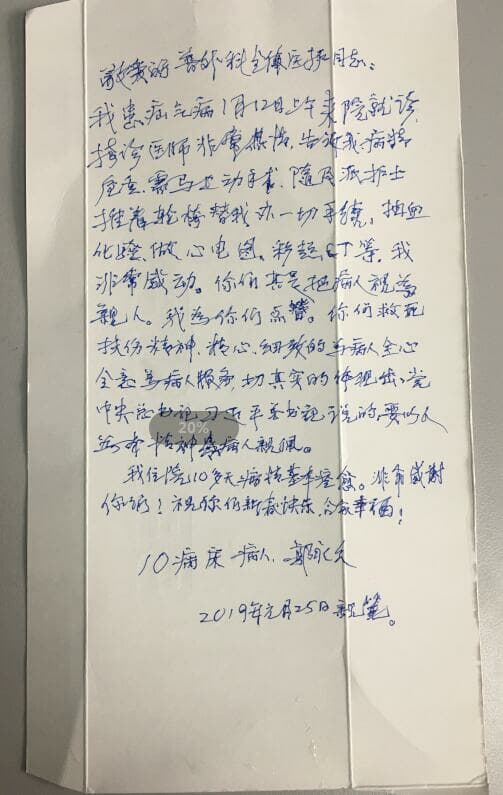 敬爱的普外科全体医护同志:
我患疝气病1月12日上午来院就诊,
接诊医师非常热情,告诉我病情
严重,需马上动手术,随即派护士
推着轮椅替我办一切手续,抽血
化验,做心电图,彩超,CT等,我
非常感动。你们真是把病人视为
亲人。我为你们点赞。你们救死
扶伤精神,精心,细致的为病人全心
全意为病人服务,切真实的体现出党
中央总书记习近平总书记说的要以人
为本精神 病人亲佩。
我住院10多天病情基本痊愈。非常感谢
你们!祝你们新春快乐,合家幸福!
10病床 病人,郭永久
2019年元月25日亲笔。
20%